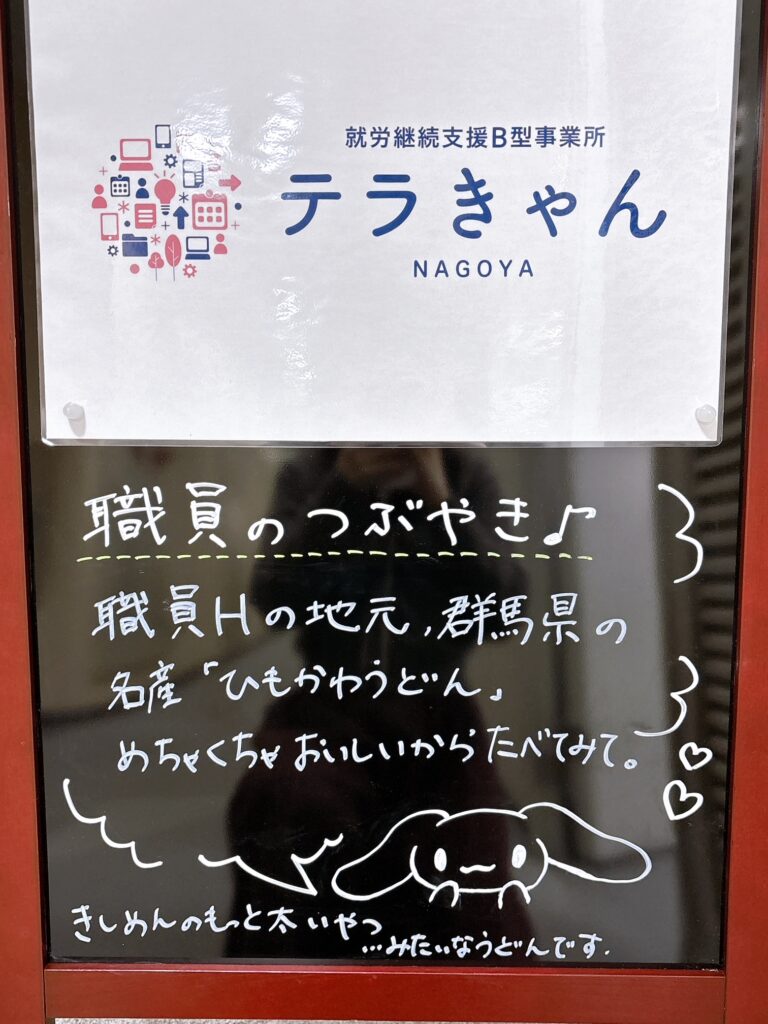 就労継続支援B型事業所
テラきゃん
NAGOYA
職員のつぶやき♪
職員Hの地元,群馬県の
名産「ひもかわうどん」
めちゃくちゃおいしいからたべてみて。
きしめんのもっと太いやつ
…みたいなうどんです.